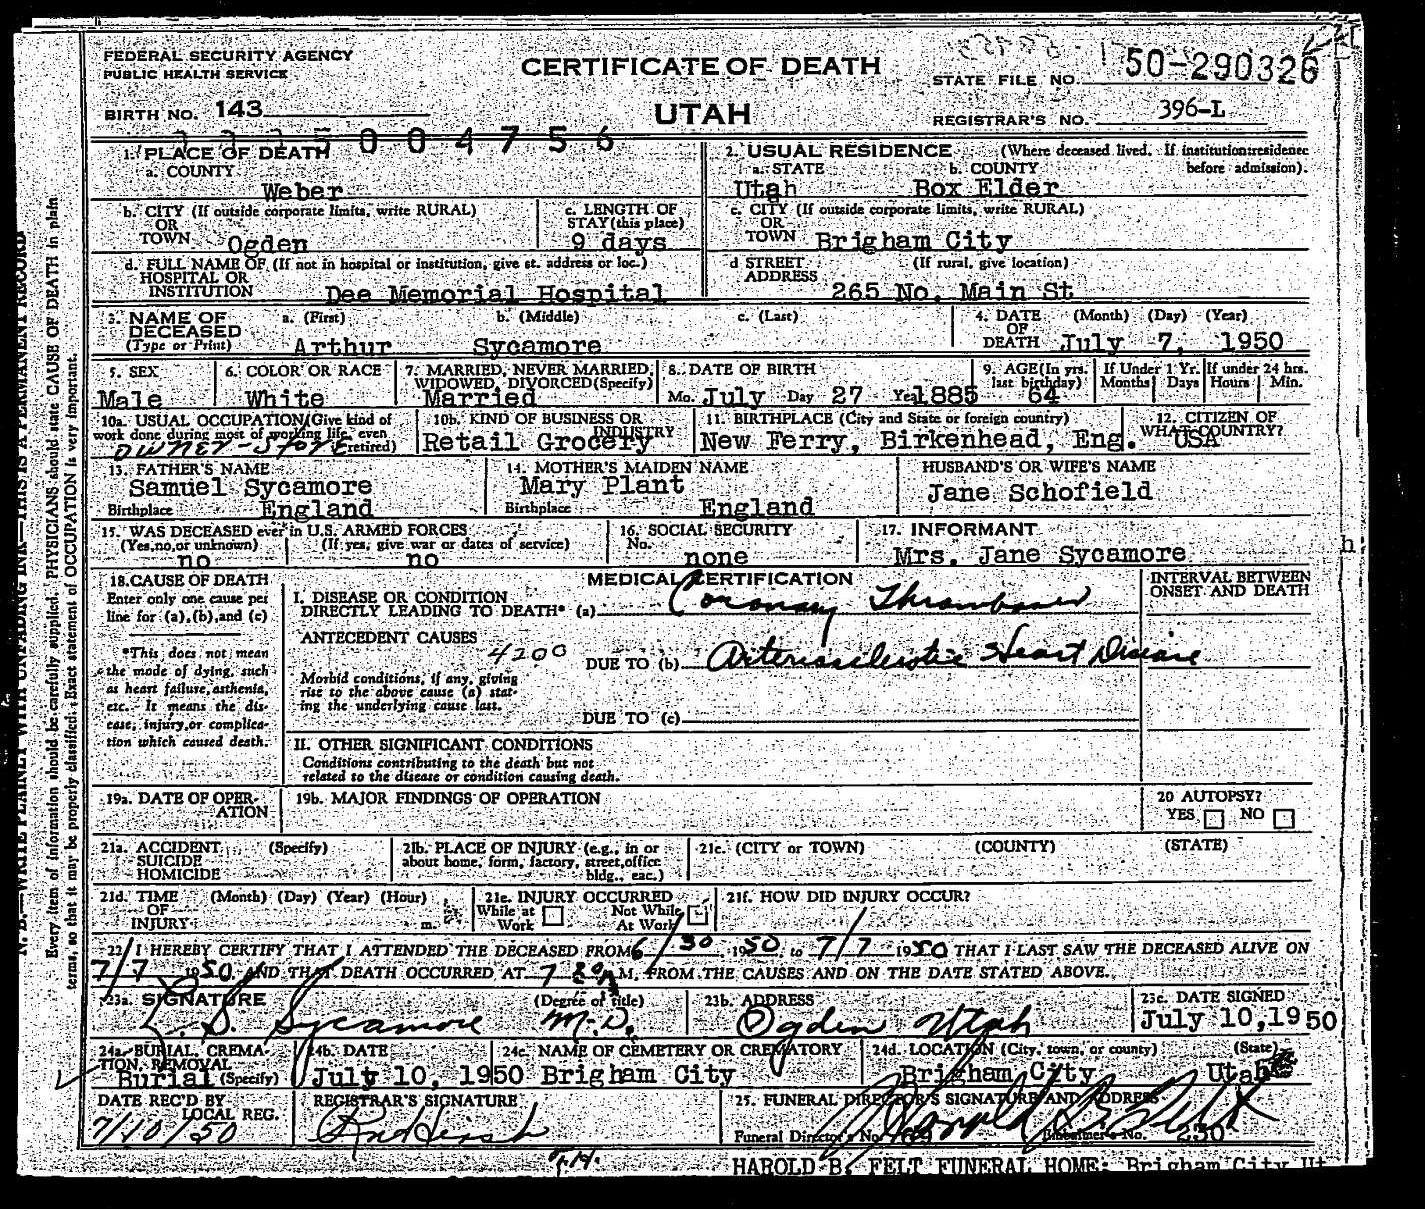 FEDERAL SECURITY AGENCY
PUBLIC HEALTH SERVICE
BIRTH NO. 143
CERTIFICATE OF DEATH
UTAH
STATE FILE NO. 50-290326
REGISTRAR'S NO. 396-L
5 0 0 4 7 5 6
1. PLACE OF DEATH
a. COUNTY
Weber
2. USUAL RESIDENCE (Where deceased lived. If institution:residence before admission).
a. STATE b. COUNTY
Utah Box Elder
b. CITY (If outside corporate limits, write RURAL)
OR
TOWN Ogden
c. LENGTH OF
STAY (this place)
9 days
c. CITY (If outside corporate limits, write RURAL)
OR
TOWN Brigham City
d. FULL NAME OF (If not in hospital or institution, give st. address or loc.)
HOSPITAL OR
INSTITUTION Dee Memorial Hospital
d STREET (If rural, give location)
ADDRESS
265 No. Main St
3. NAME OF
DECEASED
(Type or Print)
a. (First) b. (Middle) c. (Last)
Arthur Sycamore
4. DATE (Month) (Day) (Year)
OF
DEATH July 7, 1950
5. SEX
Male
6. COLOR OR RACE
White
7. MARRIED, NEVER MARRIED,
WIDOWED, DIVORCED (Specify)
Married
8. DATE OF BIRTH
Mo. July Day 27 Yr. 1885
9. AGE (In yrs.
last birthday)
64
If Under 1 Yr.
Months Days
If under 24 hrs.
Hours Min.
10a. USUAL OCCUPATION (Give kind of
work done during most of working life, even
retired)
OWNER-STORE
10b. KIND OF BUSINESS OR
INDUSTRY
Retail Grocery
11. BIRTHPLACE (City and State or foreign country)
New Ferry, Birkenhead, Eng.
12. CITIZEN OF
WHAT COUNTRY?
USA
13. FATHER'S NAME
Samuel Sycamore
Birthplace England
14. MOTHER'S MAIDEN NAME
Mary Plant
Birthplace England
HUSBAND'S OR WIFE'S NAME
Jane Schofield
15. WAS DECEASED ever in U.S. ARMED FORCES
(Yes,no,or unknown) (If yes, give war or dates of service)
no no
16. SOCIAL SECURITY
No.
none
17. INFORMANT
Mrs. Jane Sycamore
h
18. CAUSE OF DEATH
Enter only one cause per
line for (a),(b),and (c)
*This does not mean
the mode of dying, such
as heart failure, asthenia,
etc. It means the dis-
ease, injury,or complica-
tion which caused death.
MEDICAL CERTIFICATION
I. DISEASE OR CONDITION
DIRECTLY LEADING TO DEATH* (a) Coronary Thrombosis
ANTECEDENT CAUSES
4200 DUE TO (b) Arteriosclerotic Heart Disease
Morbid conditions, if any, giving
rise to the above cause (a) stat-
ing the underlying cause last.
DUE TO (c)
II. OTHER SIGNIFICANT CONDITIONS
Conditions contributing to the death but not
related to the disease or condition causing death.
INTERVAL BETWEEN
ONSET AND DEATH
19a. DATE OF OPER-
ATION
19b. MAJOR FINDINGS OF OPERATION
20 AUTOPSY?
YES NO
21a. ACCIDENT (Specify)
SUICIDE
HOMICIDE
21b. PLACE OF INJURY (e.g., in or
about home, form, factory, street,office
bldg., eac.)
21c. (CITY or TOWN) (COUNTY) (STATE)
21d. TIME (Month) (Day) (Year) (Hour)
OF
INJURY m.
21e. INJURY OCCURRED
While at Work Not While At Work
21f. HOW DID INJURY OCCUR?
22 I HEREBY CERTIFY THAT I ATTENDED THE DECEASED FROM 6/30, 1950 to 7/7 1950 THAT I LAST SAW THE DECEASED ALIVE ON
7/7 1950, AND THAT DEATH OCCURRED AT M. FROM THE CAUSES AND ON THE DATE STATED ABOVE.
23a. SIGNATURE (Degree of title)
Sycamore M.D.
23b. ADDRESS
Ogden Utah
23c. DATE SIGNED
July 10,1950
24a. BURIAL, CREMA-
TION, REMOVAL
Burial (Specify)
24b. DATE
July 10, 1950
24c. NAME OF CEMETERY OR CREMATORY
Brigham City
24d. LOCATION (City, town, or county) (State)
Brigham City Utah
DATE REC'D BY
LOCAL REG.
7/10/50
REGISTRAR'S SIGNATURE
25. FUNERAL DIRECTOR'S SIGNATURE AND ADDRESS
Harold B. Felt
Funeral Director's No. Embalmer's No. 230
HAROLD B. FELT FUNERAL HOME: Brigham City Ut
N. B.—WRITE PLAINLY WITH UNFADING INK—THIS IS A PERMANENT RECORD
Every item of information should be carefully supplied. PHYSICIANS should state CAUSE OF DEATH in plain
terms, so that it may be properly classified. Exact statement of OCCUPATION is very important.